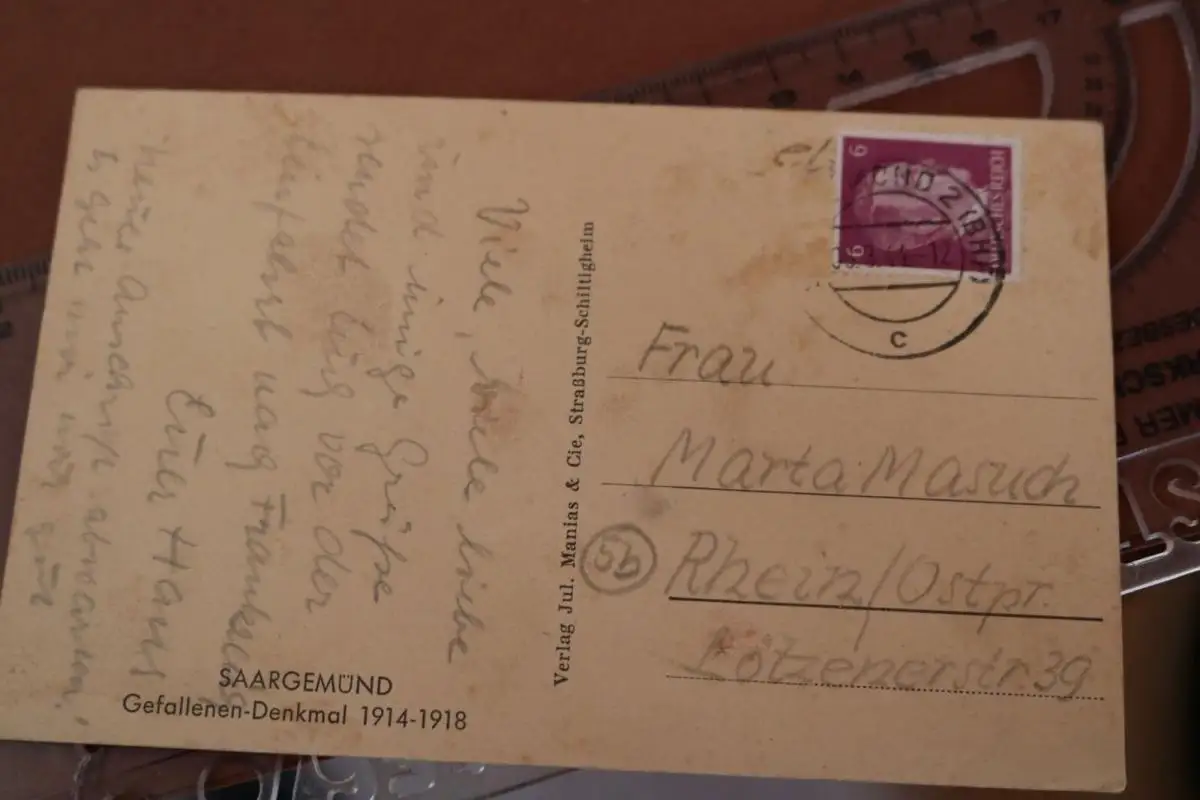 Viele, viele liebe
und innige Grüße
sendet Euch vor der
Einfahrt nach Frankreich
Euer Hans
neue Anschrift abwarten!
Es geht mir
SAARGEMÜND
Gefallenen-Denkmal 1914-1918
Verlag Jul. Manias & Cie, Straßburg-Schiltigheim
6
6
DEUTSCHES REICH
2 (BHF)
c
Frau
Marta Masuch
5b
Rhein/Ostpr.
Lötzenerstr. 39